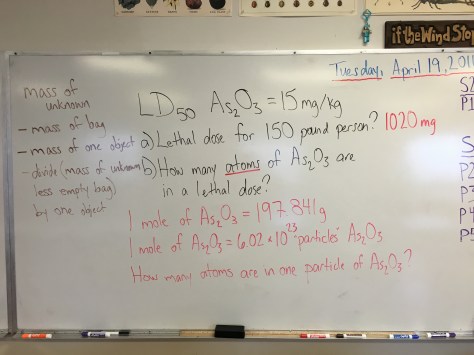 if the Wind Stop
Tuesday, April 19, 201
mass of
unknown
- mass of bag
- mass of one object
- divide (mass of unknown
less empty bag)
by one object
LD50 As2O3 = 15 mg/kg
a) Lethal dose for 150 pound person? 1020 mg
b) How many atoms of As2O3 are
in a lethal dose?
1 mole of As2O3 = 197.841g
1 mole of As2O3 = 6.02 x 10^23 "particles" As2O3
How many atoms are in one particle of As2O3?
S2
P1
S
P2
P3
P4
P5